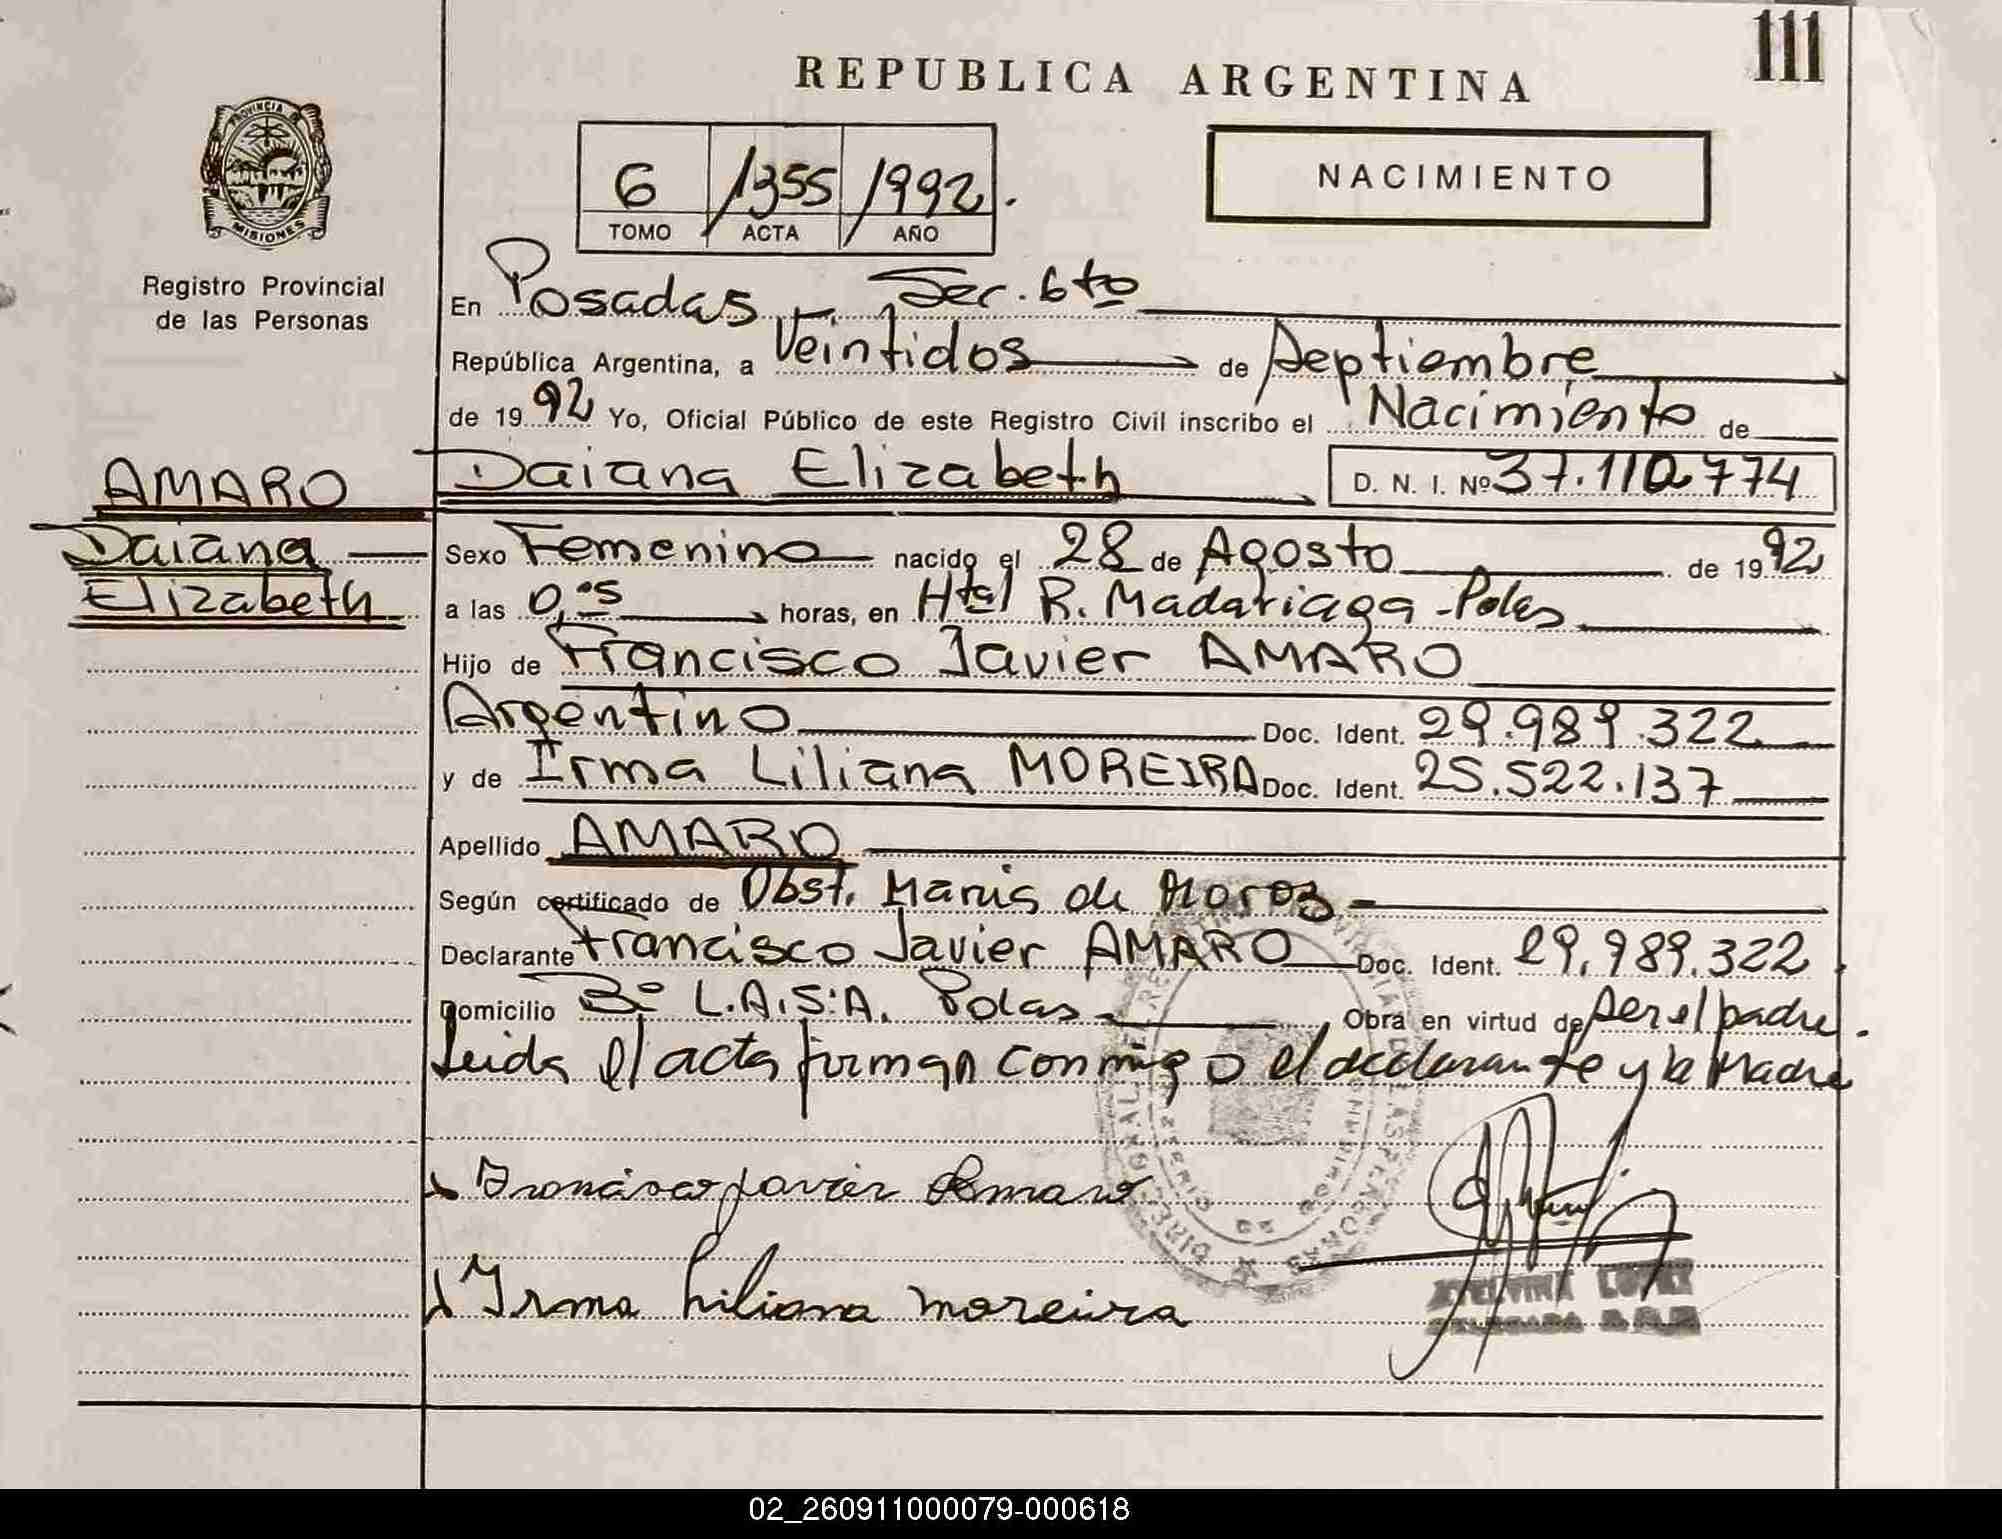 111
REPUBLICA ARGENTINA
PROVINCIA
MISIONES
6 /1355 /1992.
TOMO ACTA AÑO
NACIMIENTO
Registro Provincial
de las Personas
En Posadas, Sec. 6to
República Argentina, a Veintidos de Septiembre
de 1992 Yo, Oficial Público de este Registro Civil inscribo el Nacimiento de
AMARO
Daiana Elizabeth D. N. I. Nº 37.110.774
Daiana
Elizabeth
Sexo Femenino nacido el 28 de Agosto de 1992
a las 0,05 horas, en Htal R. Madariaga-Pdas
Hijo de Francisco Javier AMARO
Argentino Doc. Ident. 29.989.322
y de Irma Liliana MOREIRA Doc. Ident. 25.522.137
Apellido AMARO
Según certificado de Obst. de
Declarante Francisco Javier AMARO Doc. Ident. 29.989.322
Domicilio Bº L.A.S.A. Pdas Obra en virtud de ser el padre.
Leida el acta firman conmigo el declarante y la Madre
Francisco Javier Amaro
Irma Liliana Moreira
LOPEZ
02_260911000079-000618